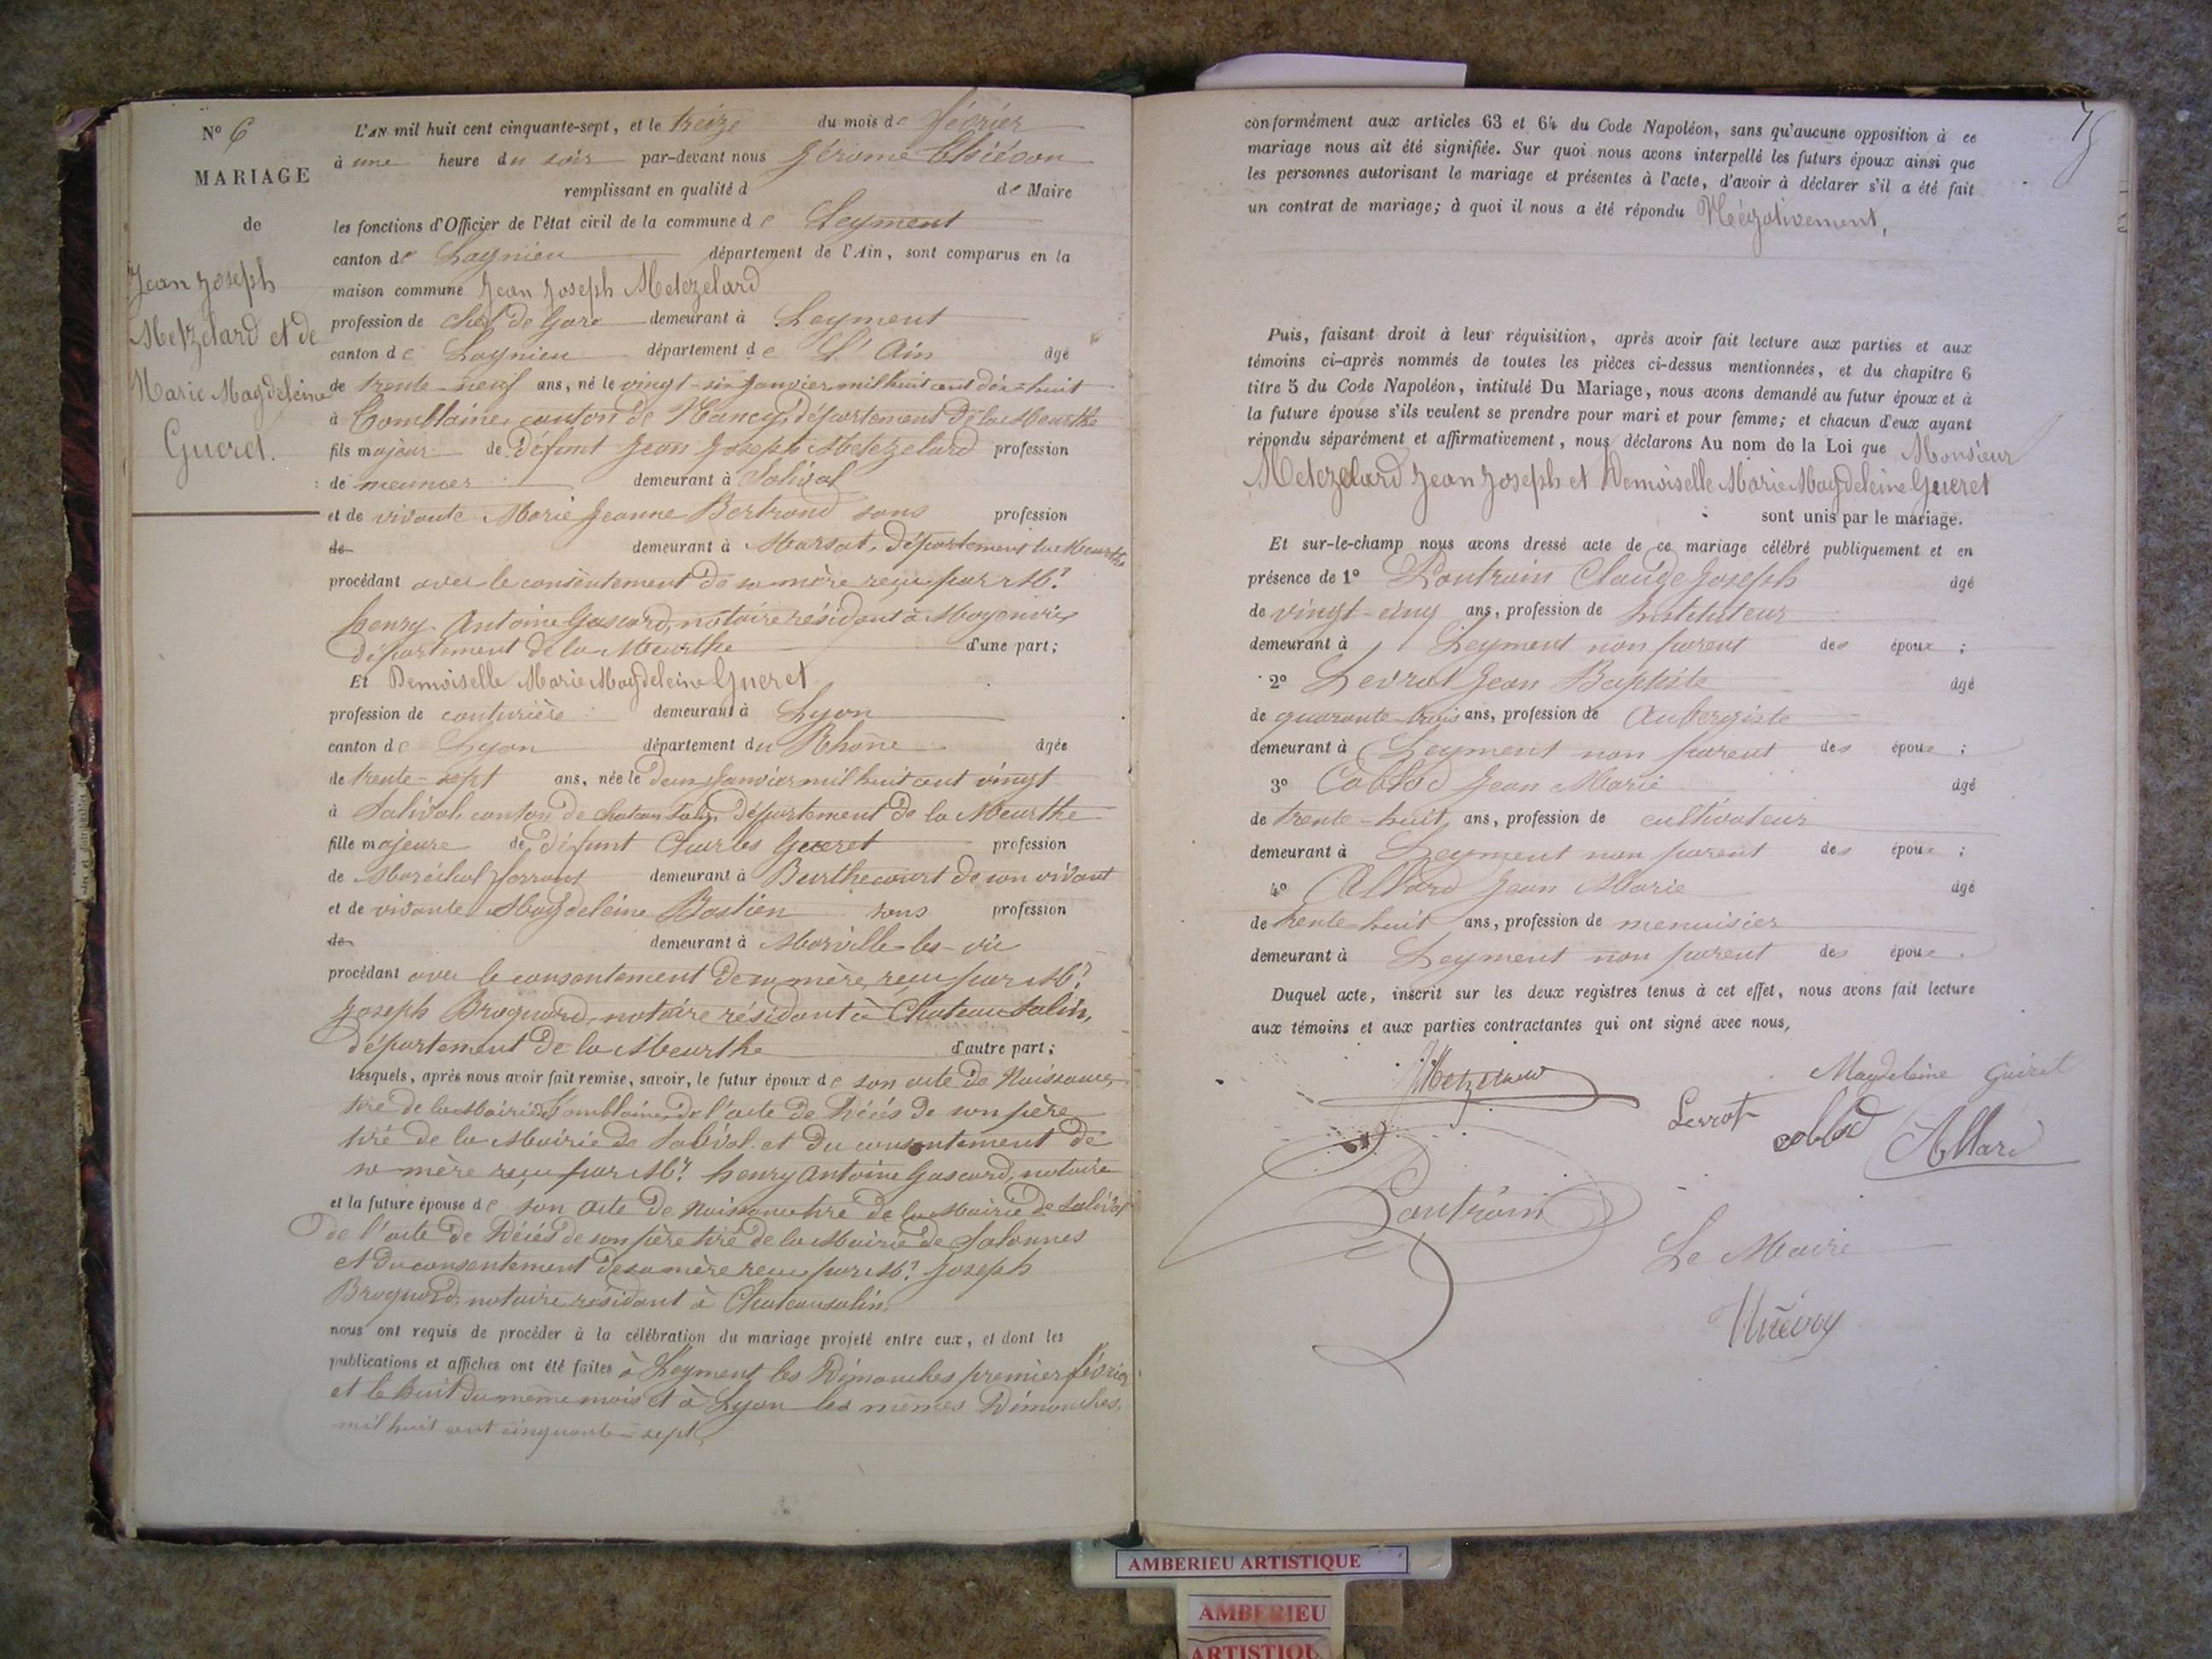 N° 6
MARIAGE
de
Jean Joseph
Metzelard et de
Marie Magdeleine
Gueret.
L'AN mil huit cent cinquante-sept, et le treize du mois de février
à une heure du soir par-devant nous Jérome
remplissant en qualité d de Maire
les fonctions d'Officier de l'état civil de la commune de Leyment
canton de Lagnieu département de l'Ain, sont comparus en la
maison commune Jean Joseph Metezelard
profession de chef de Gare demeurant à Leyment
canton de Lagnieu département de L'Ain âgé
de trente-neuf ans, né le vingt-six Janvier mil huit cent dix-huit
à Tomblaine, canton de Nancy, département de la Meurthe
fils majeur de défunt Jean Joseph Metezelard profession
de meunier demeurant à Salival
et de vivante Marie Jeanne Bertrand sans profession
de demeurant à Marsal, département la Meurthe
procédant avec le consentement de sa mère reçu par Mr
henry Antoine Gascard, notaire résidant à Moyenvic
département de la Meurthe d'une part;
Et Demoiselle Marie Magdeleine Gueret
profession de couturière demeurant à Lyon
canton de Lyon département du Rhône âgée
de trente-sept ans, née le deux Janvier mil huit cent vingt
à Salival, canton de chateau Salin, département de la Meurthe
fille majeure de défunt Charles Gueret profession
de Maréchal ferrant demeurant à Burthecourt de son vivant
et de vivante Magdeleine Bastien sans profession
de demeurant à Morville-les-vic
procédant avec le consentement de sa mère, reçu par Mr
Joseph Brognard, notaire résidant à Chateau Salin,
département de la Meurthe d'autre part;
Lesquels, après nous avoir fait remise, savoir, le futur époux de son acte de Naissance,
tiré de la Mairie de Tomblaine, de l'acte de Décès de son père
tiré de la Mairie de Salival et du consentement de
sa mère reçu par Mr henry Antoine Gascard, notaire
et la future épouse de son acte de Naissance tiré de la Mairie de Salival
de l'acte de Décès de son père tiré de la Mairie de Salonnes
et du consentement de sa mère reçu par Mr Joseph
Brognard, notaire résidant à Chateausalin,
nous ont requis de procéder à la célébration du mariage projeté entre eux, et dont les
publications et affiches ont été faites à Leyment les Dimanches premier février
et le huit du même mois et à Lyon les mêmes Dimanches,
mil huit cent cinquante-sept,
conformément aux articles 63 et 64 du Code Napoléon, sans qu'aucune opposition à ce
mariage nous ait été signifiée. Sur quoi nous avons interpellé les futurs époux ainsi que
les personnes autorisant le mariage et présentes à l'acte, d'avoir à déclarer s'il a été fait
un contrat de mariage; à quoi il nous a été répondu Négativement,
Puis, faisant droit à leur réquisition, après avoir fait lecture aux parties et aux
témoins ci-après nommés de toutes les pièces ci-dessus mentionnées, et du chapitre 6
titre 5 du Code Napoléon, intitulé Du Mariage, nous avons demandé au futur époux et à
la future épouse s'ils veulent se prendre pour mari et pour femme; et chacun d'eux ayant
répondu séparément et affirmativement, nous déclarons Au nom de la Loi que Monsieur
Metezelard Jean Joseph et Demoiselle Marie Magdeleine Gueret
sont unis par le mariage.
Et sur-le-champ nous avons dressé acte de ce mariage célébré publiquement et en
présence de 1° Poutrain Claude Joseph âgé
de vingt-cinq ans, profession de Instituteur
demeurant à Leyment non parent des époux ;
2° Levrat Jean Baptiste âgé
de quarante-trois ans, profession de Aubergiste
demeurant à Leyment non parent des époux ;
3° Coblod Jean Marie âgé
de trente-huit ans, profession de cultivateur
demeurant à Leyment non parent des époux ;
4° Allard Jean Marie âgé
de trente huit ans, profession de menuisier
demeurant à Leyment non parent des époux.
Duquel acte, inscrit sur les deux registres tenus à cet effet, nous avons fait lecture
aux témoins et aux parties contractantes qui ont signé avec nous,
Magdeleine Guéret
Levrat coblod Allard
Poutrain
Le Maire
AMBERIEU ARTISTIQUE
AMBERIEU
ARTISTIQU